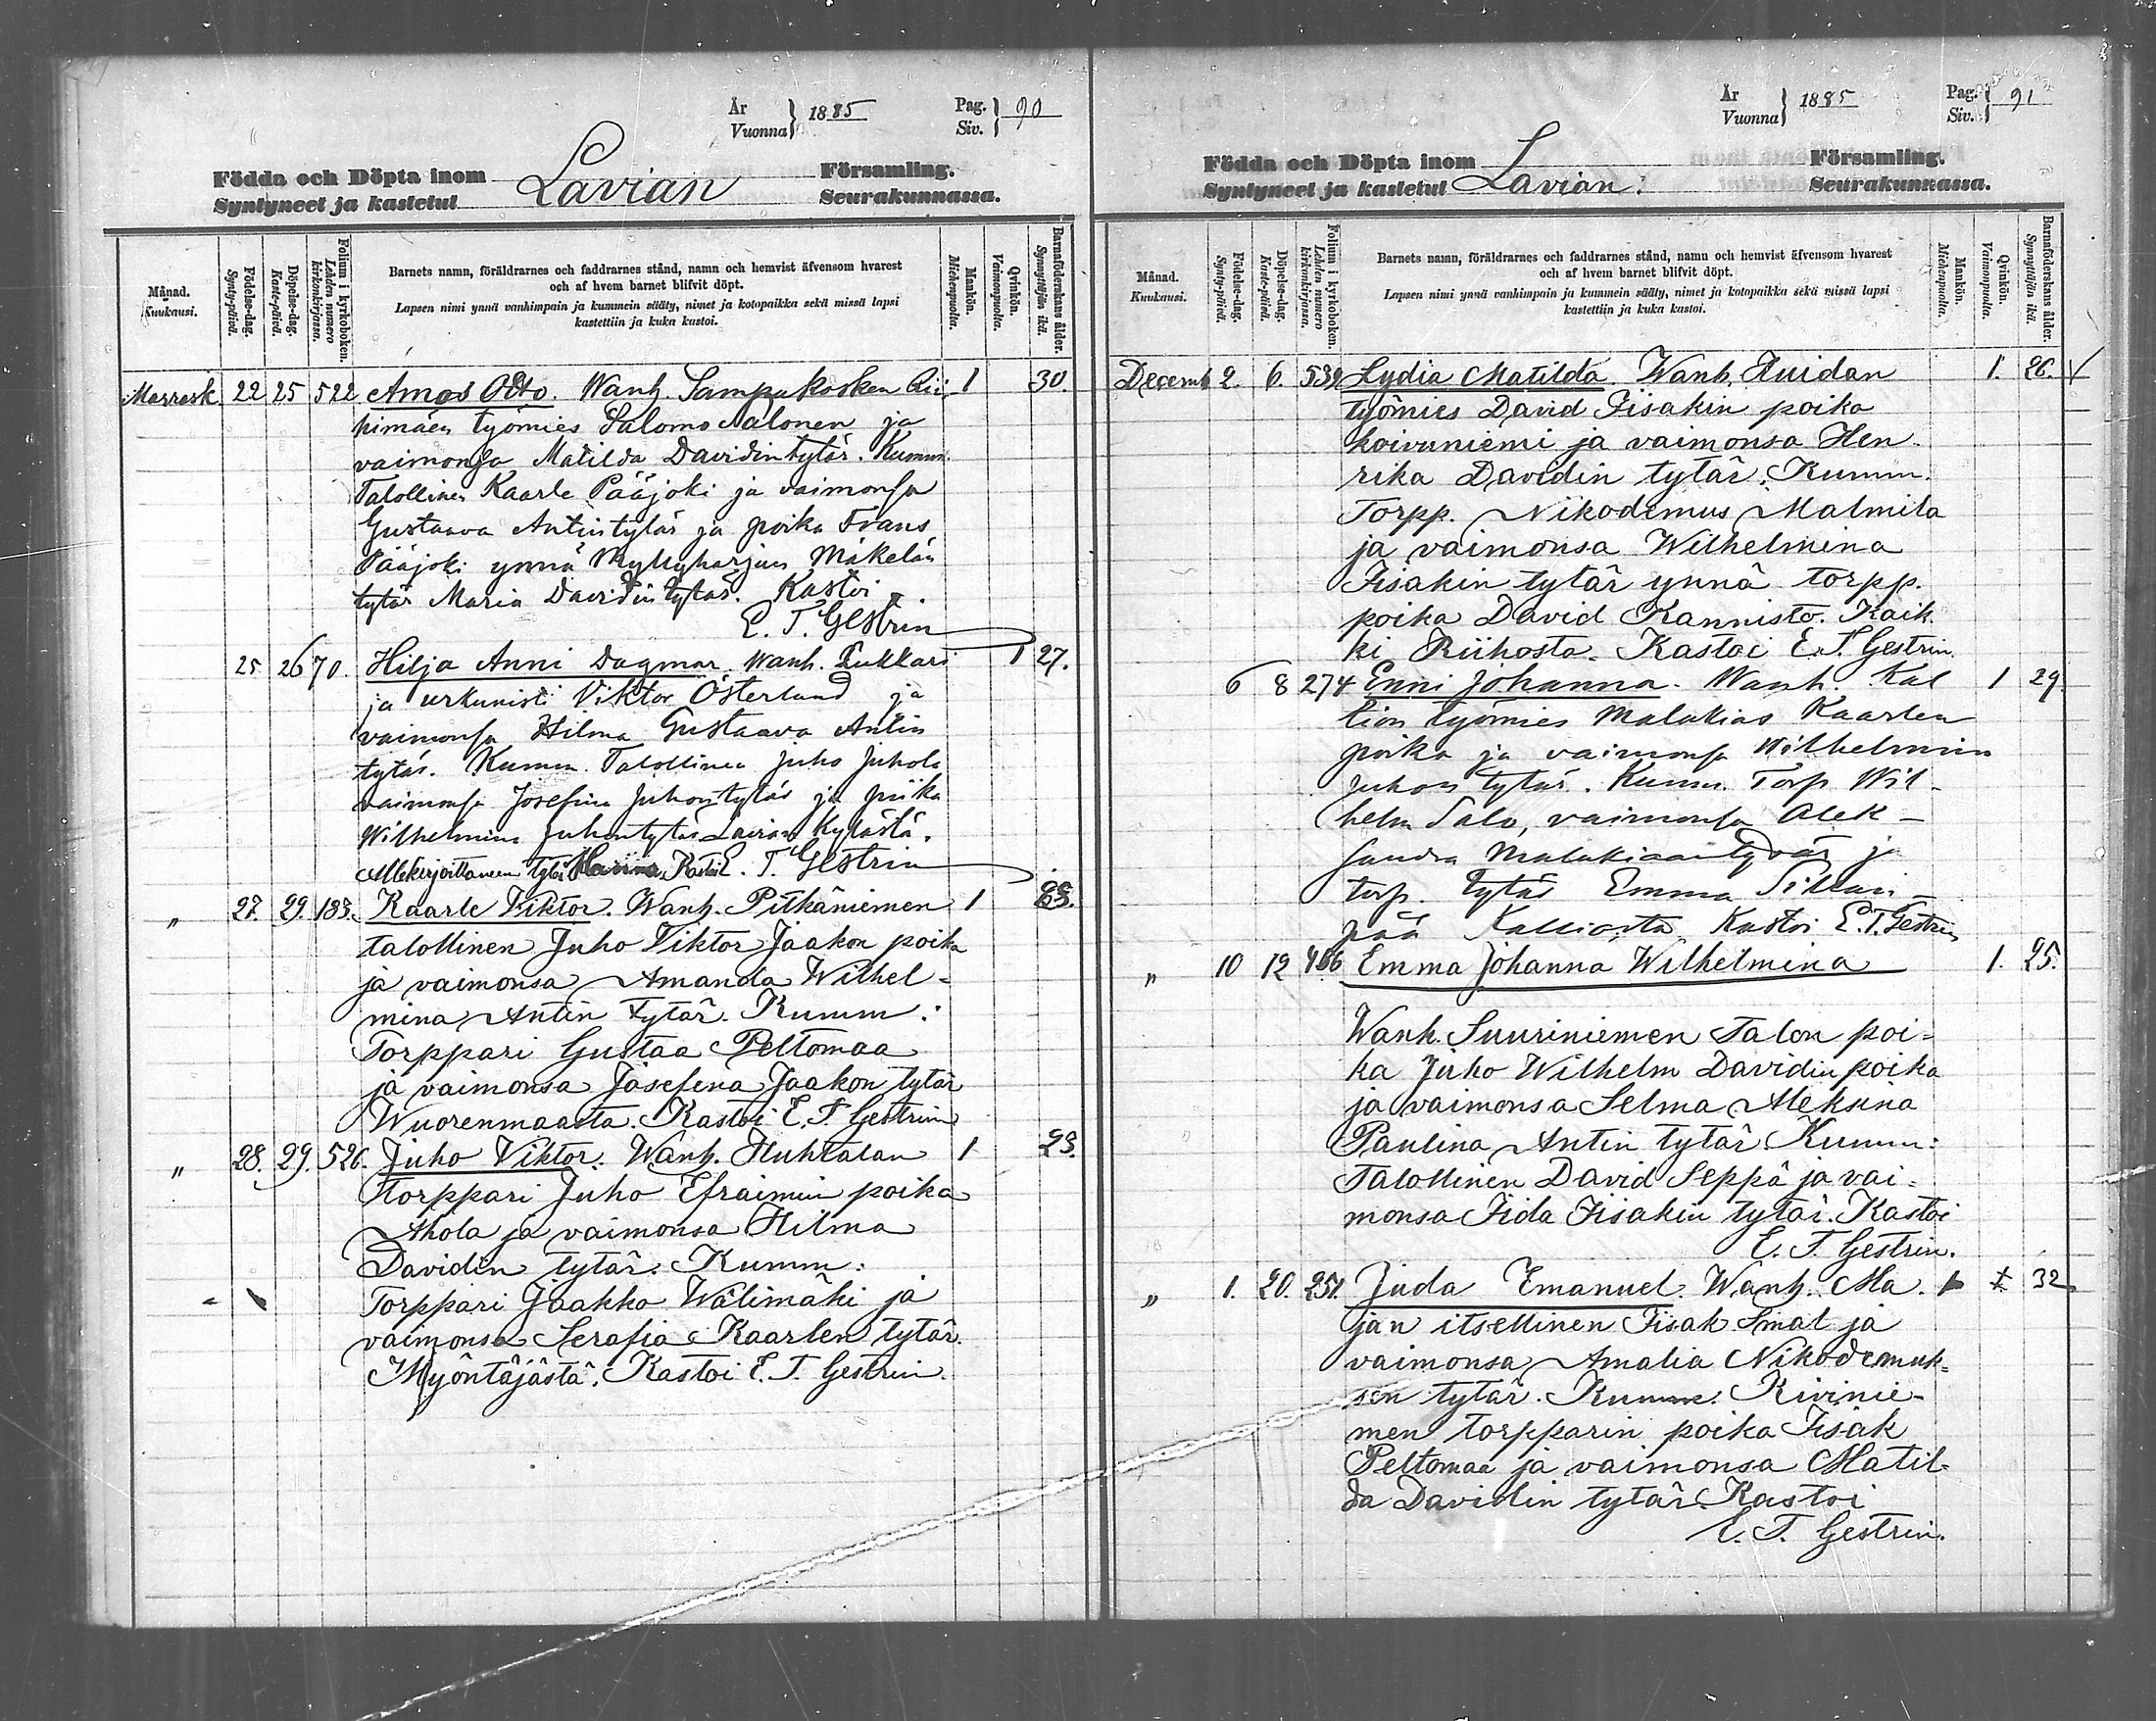 År
Vuonna } 1885 Pag.
Siv. } 90
Födda och Döpta inom Lavian Församling.
Syntyneet ja kastetut Seurakunnassa.
Månad.
Kuukausi.
Födelse-dag.
Synty-päivä.
Döpelse-dag.
Kaste-päivä.
Folium i kyrkoboken.
Lehden numero
kirkonkirjassa.
Barnets namn, föräldrarnes och faddrarnes stånd, namn och hemvist äfvensom hvarest
och af hvem barnet blifvit döpt.
Lapsen nimi ynnä vanhimpain ja kummein sääty, nimet ja kotopaikka sekä missä lapsi
kastettiin ja kuka kastoi.
Mankön.
Miehenpuolta.
Qvinkön.
Vaimonpuolta.
Barnaföderskans ålder.
Synnyttäjän ikä.
Marrask. 22 25 522 Amos Otto. Wanh. Sampakosken Rii- 1 30.
himäen työmies Salomo Salonen ja
vaimonsa Matilda Davidintytär. Kumm.
Talollinen Kaarle Pääjoki ja vaimonsa
Gustaava Antintytär ja poika Frans
Pääjoki ynnä Myllyharjun Mäkelän
tytär Maria Davidintytär. Kastoi
E. T. Gestrin
25 26 70. Hilja Anni Dagmar. Wanh. Lukkari 1 27.
ja urkunisti Viktor Österlund ja
vaimonsa Hilma Gustaava Antin
tytär. Kumm. Talollinen Juho Juhola
vaimonsa Josefina Juhontytär ja piika
Wilhelmina Juhontytär Lavian Kylästä.
Allekirjoittaneen tytär Kastoi E. T. Gestrin
" 27. 29. 183. Kaarle Viktor. Wanh. Pitkäniemen 1
talollinen Juho Viktor Jaakon poika
ja vaimonsa Amanda Wilhel-
mina Antin tytär. Kumm:
Torppari Gustaa Peltomaa
ja vaimonsa Josefina Jaakon tytär
Wuorenmaasta. Kastoi E. T. Gestrin
" 28. 29. 526. Juho Viktor. Wanh. Huhtalan 1 23.
torppari Juho Efraimin poika
Ahola ja vaimonsa Hilma
Davidin tytär. Kumm:
Torppari Jaakko Wälimäki ja
vaimonsa Serafia Kaarlen tytär.
Myöntäjästä. Kastoi E. T. Gestrin.
År
Vuonna } 1885 Pag.
Siv. } 91
Födda och Döpta inom Lavian. Församling.
Syntyneet ja kastetut Seurakunnassa.
Månad.
Kuukausi.
Födelse-dag.
Synty-päivä.
Döpelse-dag.
Kaste-päivä.
Folium i kyrkoboken.
Lehden numero
kirkonkirjassa.
Barnets namn, föräldrarnes och faddrarnes stånd, namn och hemvist äfvensom hvarest
och af hvem barnet blifvit döpt.
Lapsen nimi ynnä vanhimpain ja kummein sääty, nimet ja kotopaikka sekä missä lapsi
kastettiin ja kuka kastoi.
Mankön.
Miehenpuolta.
Qvinkön.
Vaimonpuolta.
Barnaföderskans ålder.
Synnyttäjän ikä.
Decemb. 2. 6. 539 Lydia Matilda. Wanh. Huidan 1. 26.
työmies David Iisakin poika
koivuniemi ja vaimonsa Hen-
rika Davidin tytär. Kumm.
Torpp. Nikodemus Malmila
ja vaimonsa Wilhelmina
Iisakin tytär ynnä torpp.
poika David Kannisto. Kaik-
ki Riihosta. Kastoi E. T. Gestrin.
6 8 274 Enni Johanna. Wanh. Kal 1 29.
lion työmies Malakias Kaarlen
poika ja vaimonsa Wilhelmiin
Juhon tytär. Kumm. Torp. Wil-
helm Salo, vaimonsa Alek-
sandra Malakiaantytär ja
torp. tytär Emma Sillan-
pää Kalliosta. Kastoi E. T. Gestrin
" 10 12 466 Emma Johanna Wilhelmina 1. 25.
Wanh. Suuriniemen Talon poi-
ka Juho Wilhelm Davidin poika
ja vaimonsa Selma Aleksina
Paulina Antin tytär. Kumm:
Talollinen David Seppä ja vai-
monsa Iida Iisakin tytär. Kastoi
E. T. Gestrin.
" 1. 20. 251. Juda Emanuel. Wanh. Ma. 1 32
jan itsellinen Iisak Smal ja
vaimonsa Amalia Nikodemuk-
sen tytär. Kumm. Kivinie-
men torpparin poika Iisak
Peltomaa ja vaimonsa Matil-
da Davidin tytär. Kastoi
E. T. Gestrin.